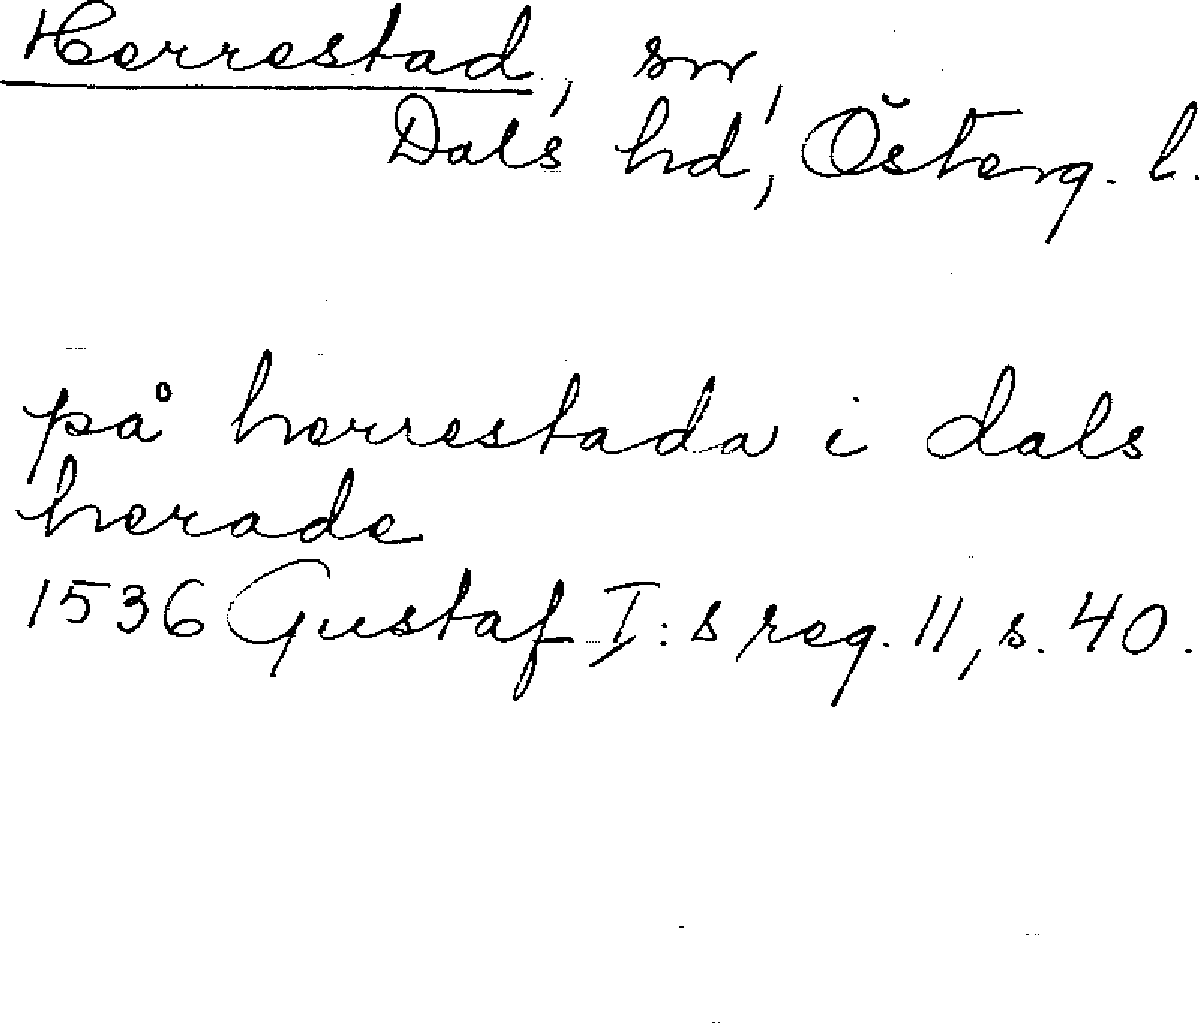 Herrestad, sn,
Dals hd, Österg. l.
på herrestada i dals
herade
1536 Gustaf I:s reg. 11, s. 40.